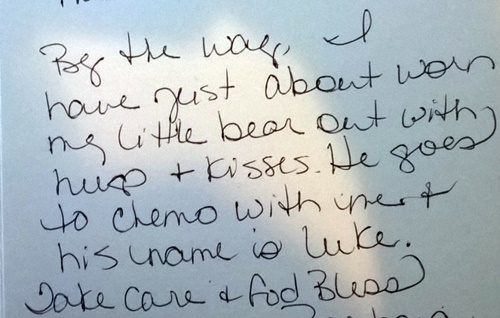 By the way, I
have just about worn
my little bear out with
hugs + kisses. He goes
to chemo with me +
his name is Luke.
Take care + God Bless